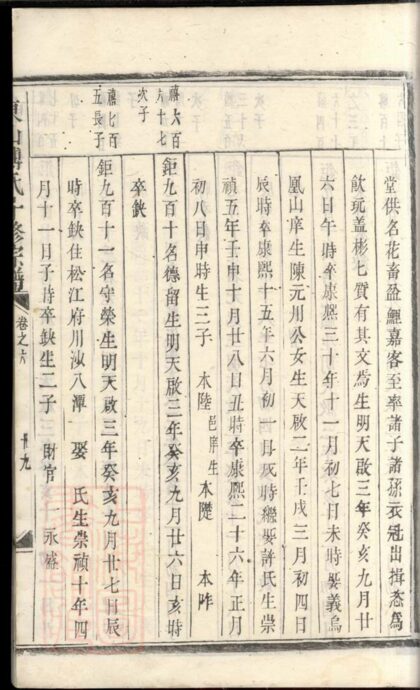 堂供名花畜盈鯉嘉客至率諸子諸孫衣冠出揖忝為
飲玩盖彬七質有其文焉生明天啟三年癸亥九月廿
六日午時卒康熙三十年十一月初七日未時娶義烏
鳳山庠生陳元州公女生天啟二年壬戌三月初四日
辰時卒康熙十五年六月初一日戌時繼娶許氏生崇
禎五年壬申十月廿八日丑時卒康熙二十六年正月
初八日申時生三子 本陸 邑庠生 本礎 本昨
禧六百
六十七
次子
鉅九百十名德留生明天啟三年癸亥九月廿六日亥時
卒缺
禧七百
五長子
鉅九百十一名守榮生明天啟三年癸亥九月廿七日辰
時卒缺住松江府川沙八潭 娶 氏生崇禎十年四
月十一日子時卒缺生二子 財官 永盛
東山傅氏十修宗譜
卷之六
十九